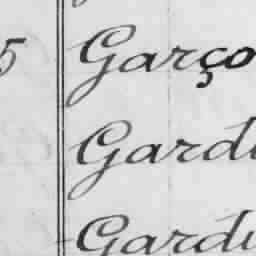 5 Garço
Gard
Gard